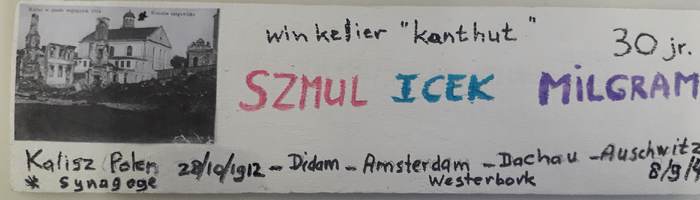 winkelier "kanthut"
30 jr.
SZMUL ICEK MILGRAM
Kalisz Polen 28/10/1912 - Didam - Amsterdam - Dachau - Auschwitz
* synagoge Westerbork 8/9/4